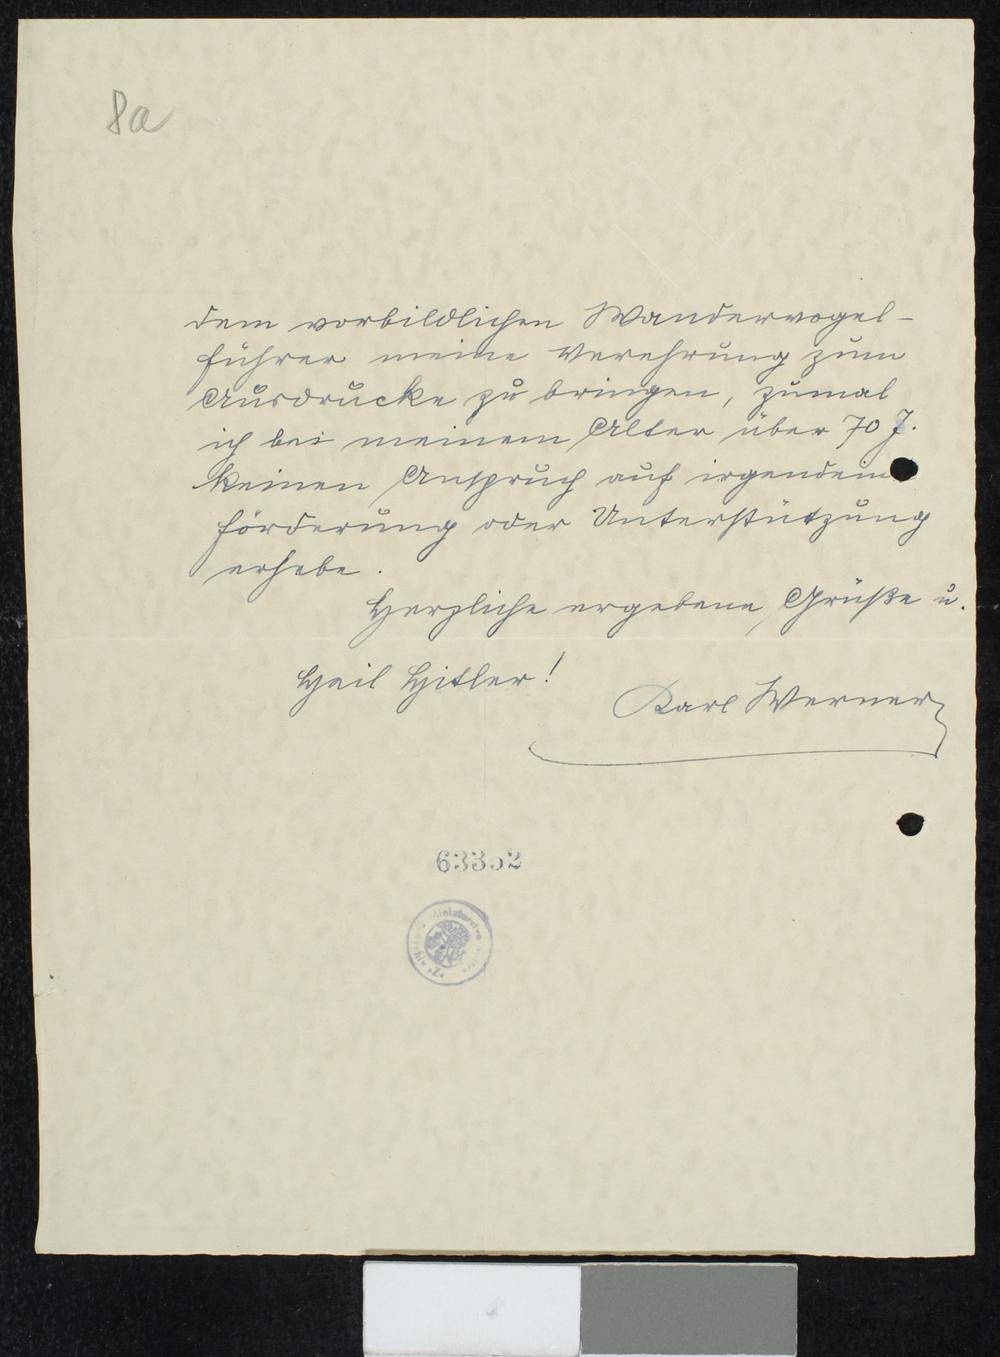 8a
dem vorbildlichen Wandervogel-
führer meine Verehrung zum
Ausdrucke zu bringen, zumal
ich bei meinem Alter über 70 J.
keinen Anspruch auf irgendeine
Förderung oder Unterstützung
erhebe.
Herzliche ergebene Grüße u.
Heil Hitler!
Karl Werner
63352